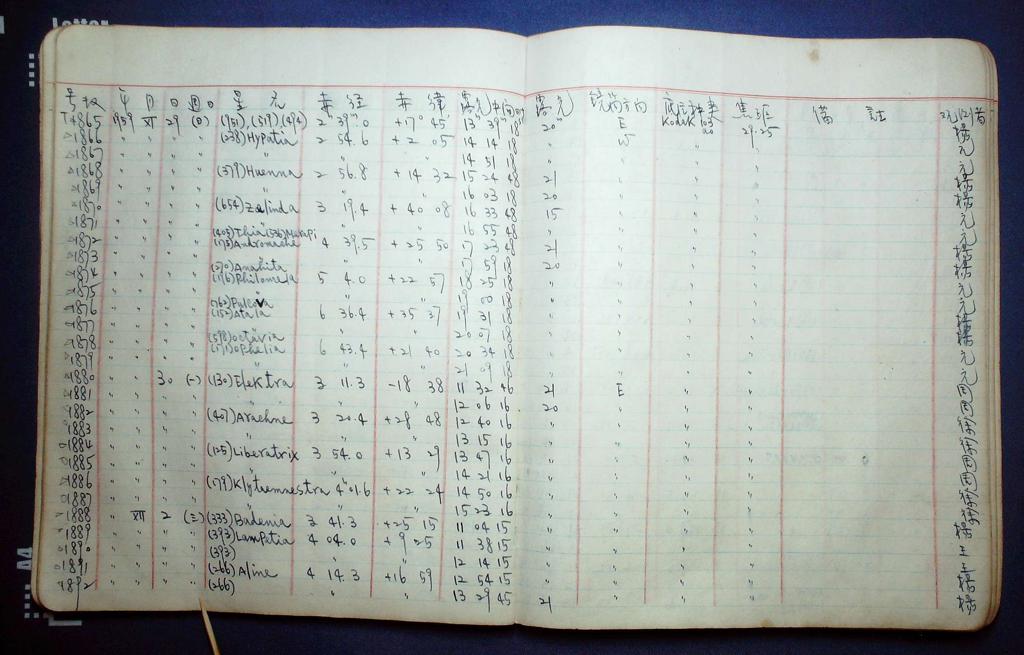 号数 年 月 日 週日 星名 赤経 赤緯 露光中间时 露光 鏡筒方向 底片种类 焦距 備註 观测者
1865 1959 XI 29 (日) (951),(519)(494) 2 39.0 +17 45 13 39 18 20 E Kodak 103 a0 29.25 樣
1866 " " " " (238) Hypatia 2 54.6 +2 05 14 14 18 " W " " 元
1867 " " " " " 14 51 18 " " " " 元
1868 " " " " (379) Huenna 2 56.8 +14 32 15 24 48 21 " " " 樣
1869 " " " " " 16 03 18 20 " " " 樣
1870 " " " " (654) Zelinda 3 19.4 +40 08 16 33 48 15 " " " 元
1871 " " " " " 16 55 48 " " " " 元
(405) Thia (536) Merapi
1872 " " " " (175) Andromache 4 39.5 +25 50 17 23 48 21 " " " 樣
1873 " " " " " 17 59 18 20 " " " 樣
(270) Anahita
1874 " " " " (196) Philomela 5 4.0 +22 57 18 25 18 " " " " 元
1875 " " " " " 00 18 " " " " 元
(762) Pulcova
1876 " " " " (152) Atala 6 36.4 +35 37 19 31 18 " " " " 樣
1877 " " " " " 20 07 18 " " " " 樣
(598) Octavia
1878 " " " " (171) Ophelia 6 43.4 +21 40 20 34 18 " " " " 元
1879 " " " " " 21 09 18 " " " " 元
1880 " " 30 (一) (130) Elektra 3 11.3 -18 38 11 32 46 21 E " "
1881 " " " " " 12 06 16 20 " " "
1882 " " " " (407) Arachne 3 20.4 +28 48 12 40 16 " " " "
1883 " " " " " 13 15 16 " " " "
1884 " " " " (125) Liberatrix 3 54.0 +13 29 13 47 16 " " " "
1885 " " " " " 14 21 16 " " " "
1886 " " " " (179) Klytaemnestra 4 01.6 +22 24 14 50 16 " " " "
1887 " " " " " 15 23 16 " " " "
1888 " XII 2 (三) (333) Badenia 3 41.3 +25 15 11 04 15 " " " " 樣
1889 " " " " (393) Lampetia 4 04.0 +9 25 11 38 15 " " " " 王
1890 " " " " (393) " 12 14 15 " " " " 王
1891 " " " " (266) Aline 4 14.3 +16 59 12 54 15 " " " " 樣
1892 " " " " (266) " 13 29 45 21 " " " 樣
Letter
A4